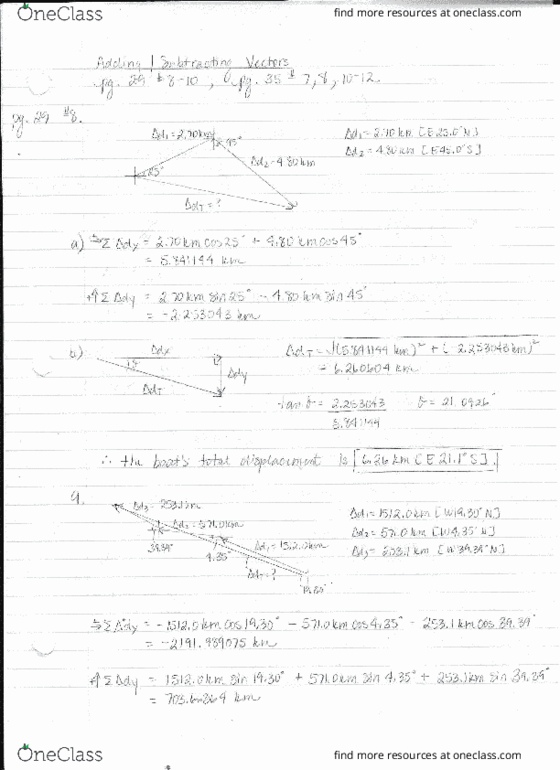 OneClass
find more resources at oneclass.com
Adding | Subtracting Vectors
pg. 29 # 8-10, pg. 35 # 7,8, 10-12.
pg. 29 #8.
Δd₁=2.70km
45°
Δd₁=2.70 km [E25.0°N]
Δd₂=4.80 km [E45.0°S]
Δd₂=4.80km
25°
ΔdT=?
a) ΣΔdx = 2.70 km cos25° + 4.80 km cos45°
= 5.841144 km
+↑ΣΔdy = 2.70 km sin 25° - 4.80 km sin 45°
= -2.253043 km
b) Δdx
ΔdT = √(5.841144 km)² + (-2.253043 km)²
Δdy
= 6.260604 km
ΔdT
tan θ = 2.253043
θ = 21.0926°
5.841144
∴ the boat's total displacement is [6.26 km [E 21.1° S].]
9.
Δd₃ = 253.1km
Δd₂ = 571.0km
39.39°
4.35°
Δd₁ = 1512.0km
ΔdT=?
Δd₁= 1512.0 km [W19.30°N]
Δd₂= 571.0 km [W4.35°N]
Δd₃= 253.1 km [W39.39°N]
ΣΔdx = -1512.0 km cos 19.30° - 571.0 km cos 4.35° - 253.1 km cos 39.39°
= -2191.939075 km
+↑ΣΔdy = 1512.0 km sin 19.30° + 571.0 km sin 4.35° + 253.1km sin 39.39°
km
OneClass
find more resources at oneclass.com